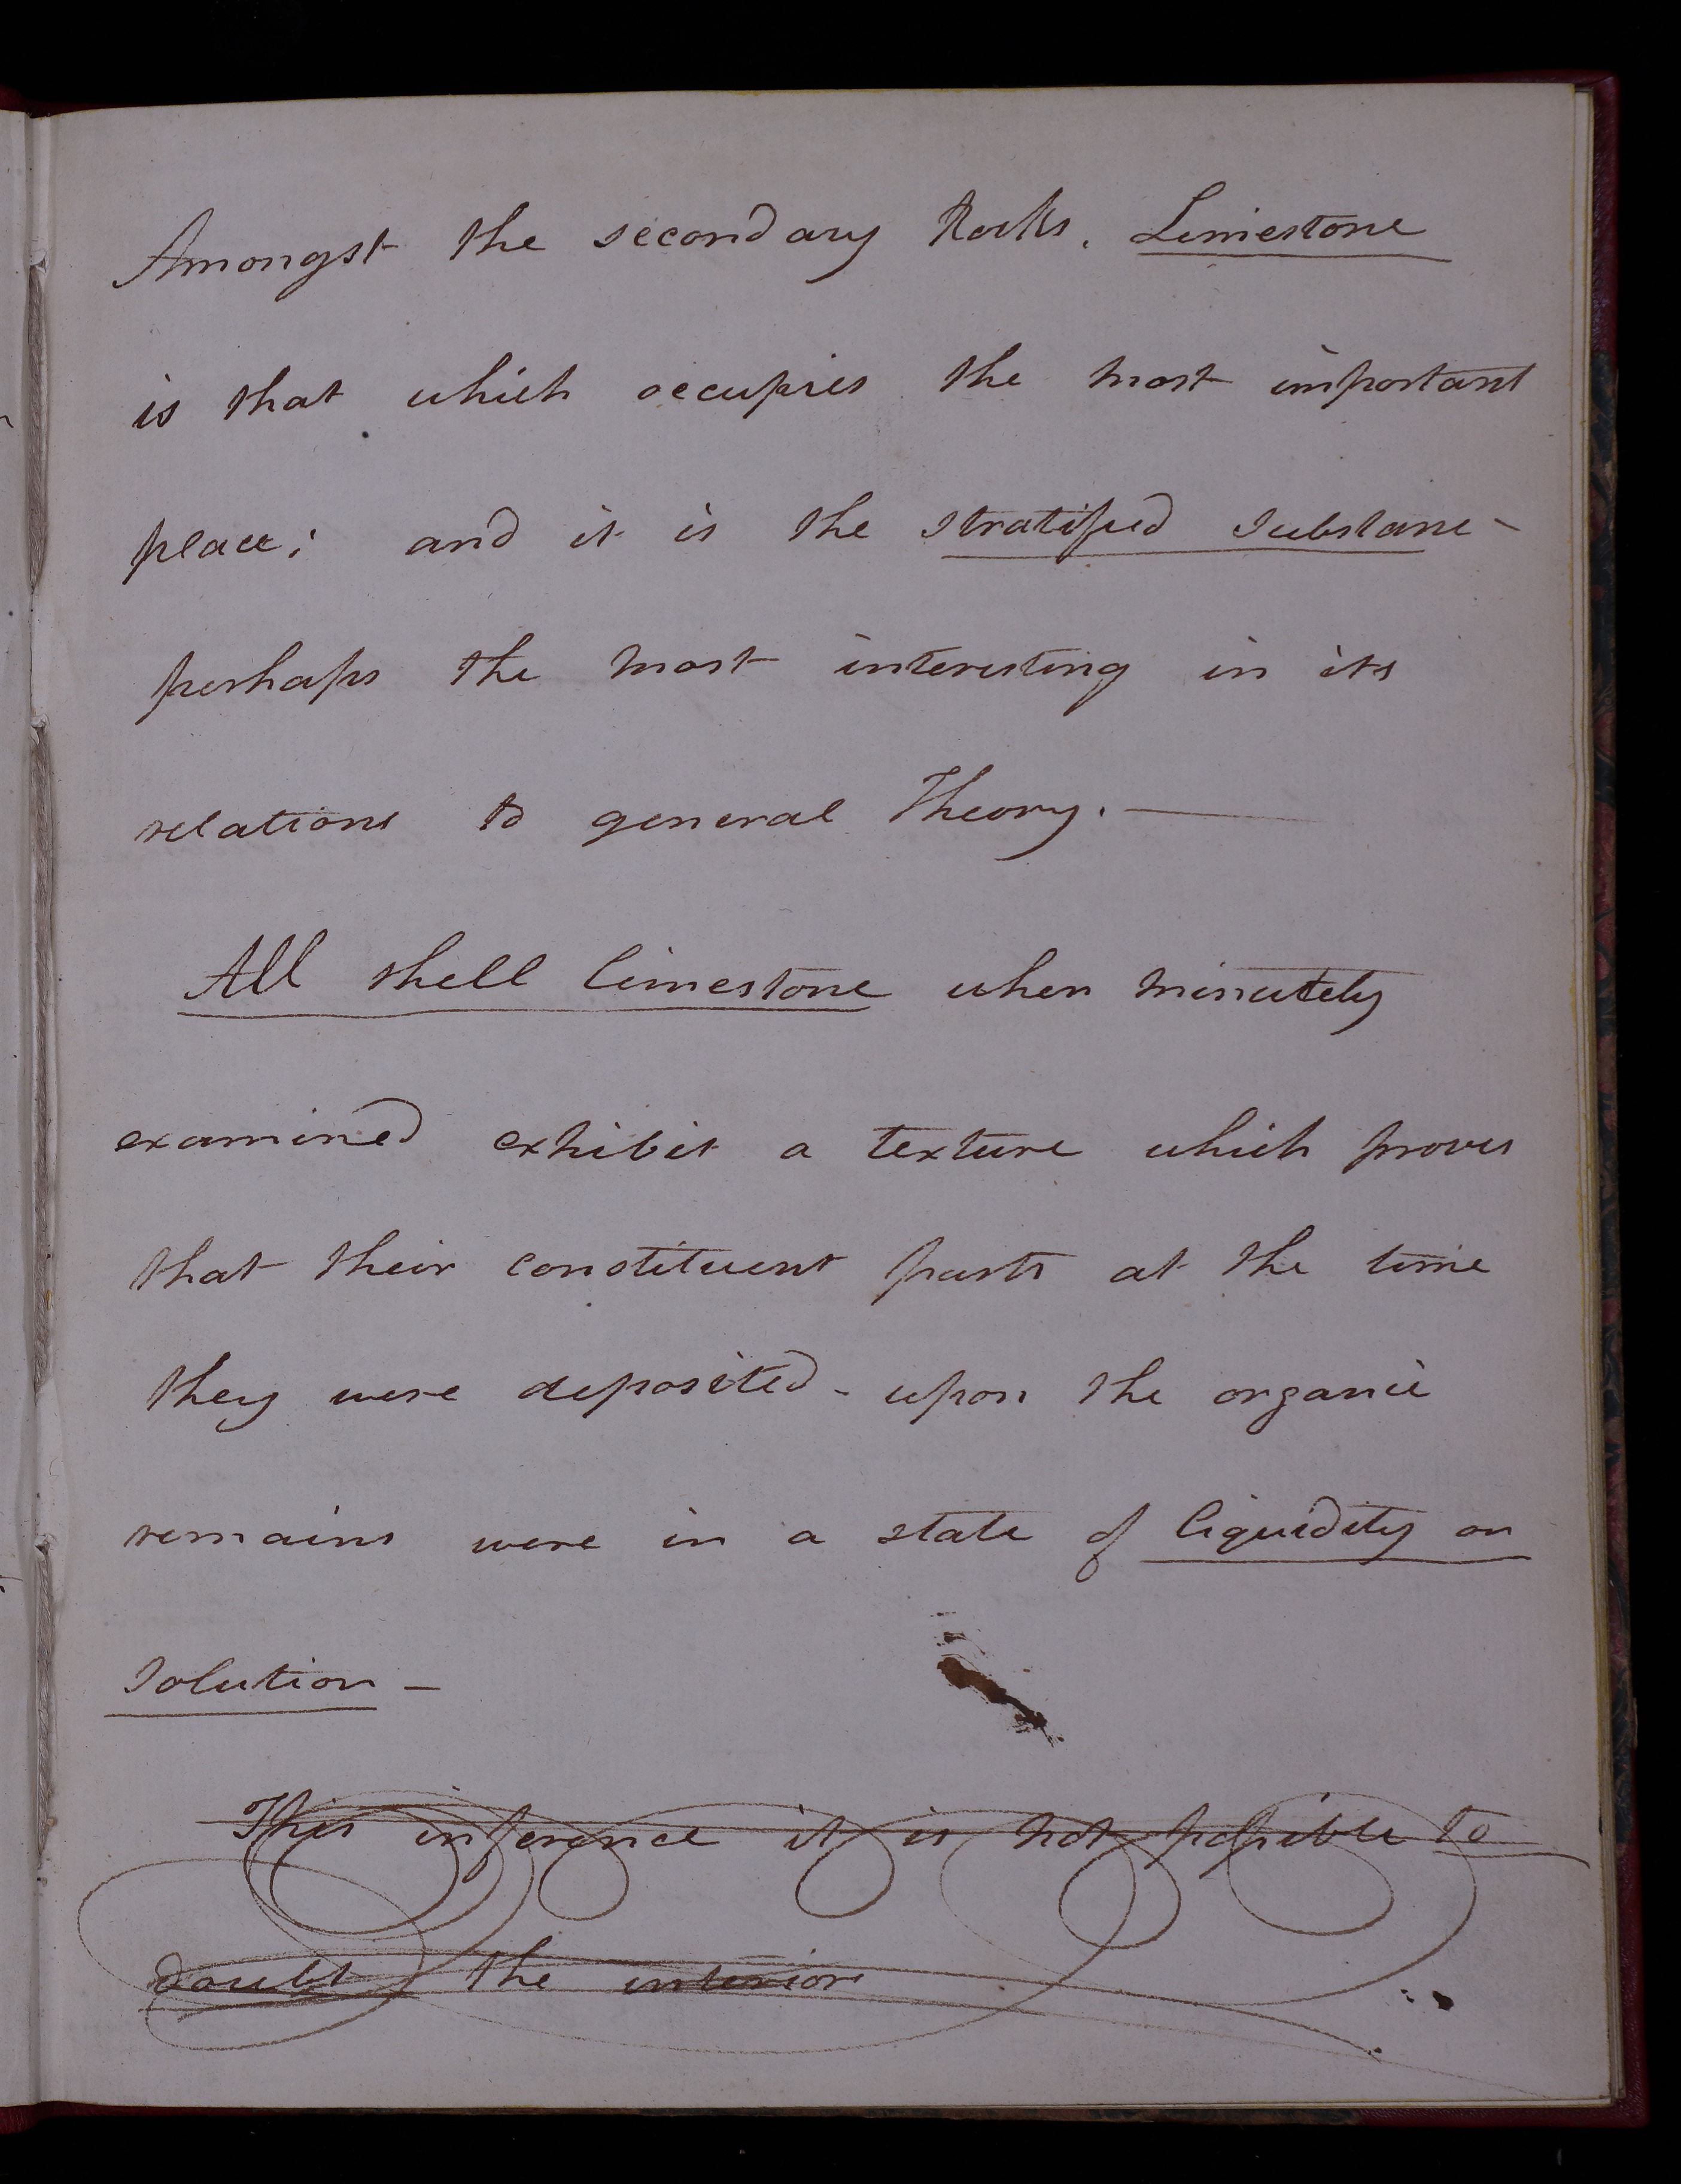 Amongst the secondary Rocks. Limestone
is that which occupies the most important
place; and it is the stratified substance -
perhaps the most interesting in its
relations to general Theory. —
All shell limestone when minutely
examined exhibit a texture which proves
that their constituent parts at the time
they were deposited - upon the organic
remains were in a state of liquidity or
solution -
This inference it is not possible to
doubt the interior